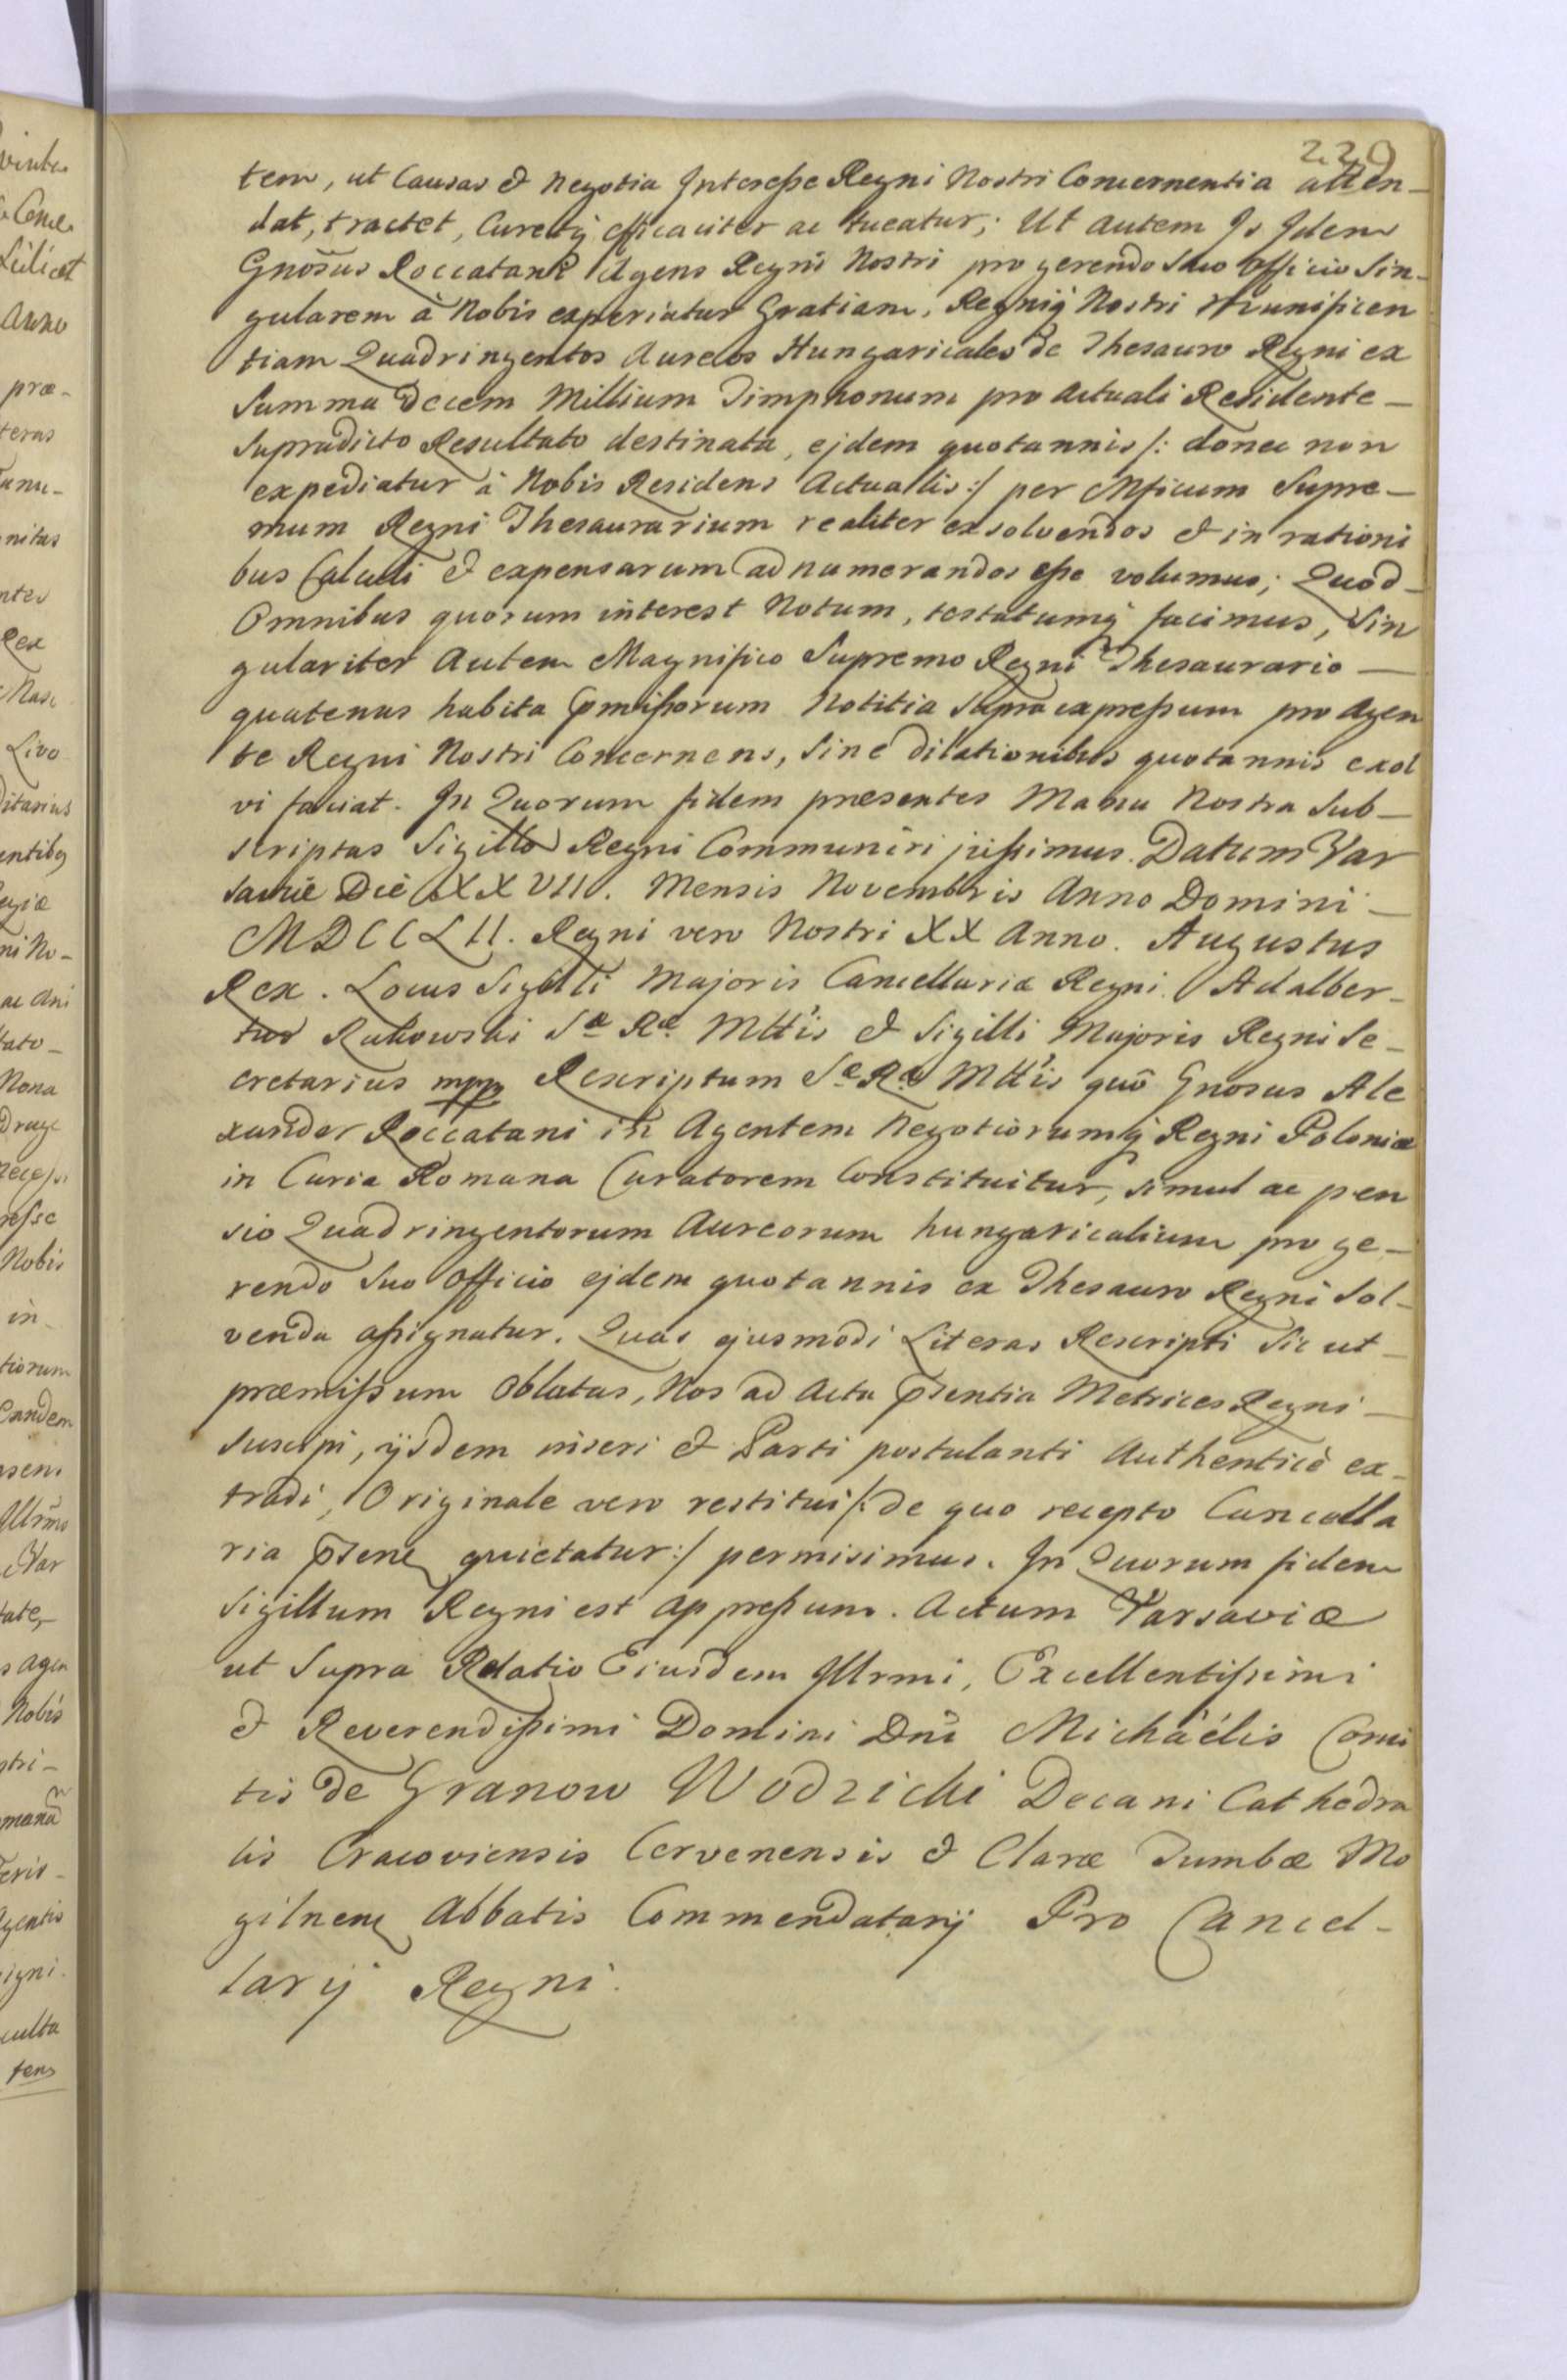 220
tem, ut Causas & Negotia Interesse Regni Nostri Concernentia atten-
dat, tractet, Curetq́ efficaciter ac tueatur; Ut autem Is Idem
Gnōsus Roccatani Agens Regni Nostri pro gerendo Suo Officio Sin-
gularem à Nobis experiatur Gratiam, Regniq́ Nostri Munificen
tiam Quadringentos Aureos Hungaricales de Thesauro Regni ex
Summa Decem Millium Timphonum pro Actuali Residente –
Supradicto Resultato destinata, ejdem quotannis /: donec non
expediatur à Nobis Residens Actualis :/ per Mficum Supre –
mum Regni Thesaurarium realiter exsolvendos & in rationi
bus Calculi & expensarum adnumerandos esse volumus; Quod –
Omnibus quorum interest Notum, testatumq́ facimus, Sin
gulariter Autem Magnifico Supremo Regni Thesaurario –
quatenus habita p̄missorum Notitia Supra expressum pro Agen
te Regni Nostri Concernens, Sine dilationibus quotannis exol
vi faciat. In Quorum fidem præsentes Manu Nostra Sub –
scriptas Sigillo Regni Communiri jussimus. Datum Var
saviæ Die XXVII. Mensis Novembris Anno Domini –
MDCCLII. Regni vero Nostri XX Anno. Augustus
Rex. Locus Sigilli Majoris Cancellariæ Regni. Adalber-
tus Rukowski Sæ Ræ Mttis & Sigilli Majoris Regni Se-
cretarius mpp Rescriptum Sæ Ræ Mttis quō Gnosus Ale
xander Roccatani in Agentem Negotiorumq́ Regni Poloniæ
in Curia Romana Curatorem Constituitur, simul ac pen
sio Quadringentorum Aureorum hungaricalium pro ge –
rendo Suo Officio ejdem quotannis ex Thesauro Regni Sol-
venda assignatur. Quas ejusmodi Literas Rescripti Sic ut –
præmissum Oblatas, Nos ad Acta p̄sentia Metrices Regni –
Suscipi, ijsdem inseri & Parti postulanti Authenticè ex-
tradi, Originale vero restitui /: de quo recepto Cancella
ria p̄sens quietatur :/ permisimus. In Quorum fidem
Sigillum Regni est appressum. Actum Varsaviæ
ut Supra Relatio Eiusdem Illrmi, Excellentissimi
& Reverendissimi Domini Dnī Michaélis Comi
tis de Granow Wodzicki Decani Cathedra
lis Cracoviensis Cervenensis & Claræ Tumbæ Mo
gilnens Abbatis Commendatarij Pro Cancel-
larij Regni.